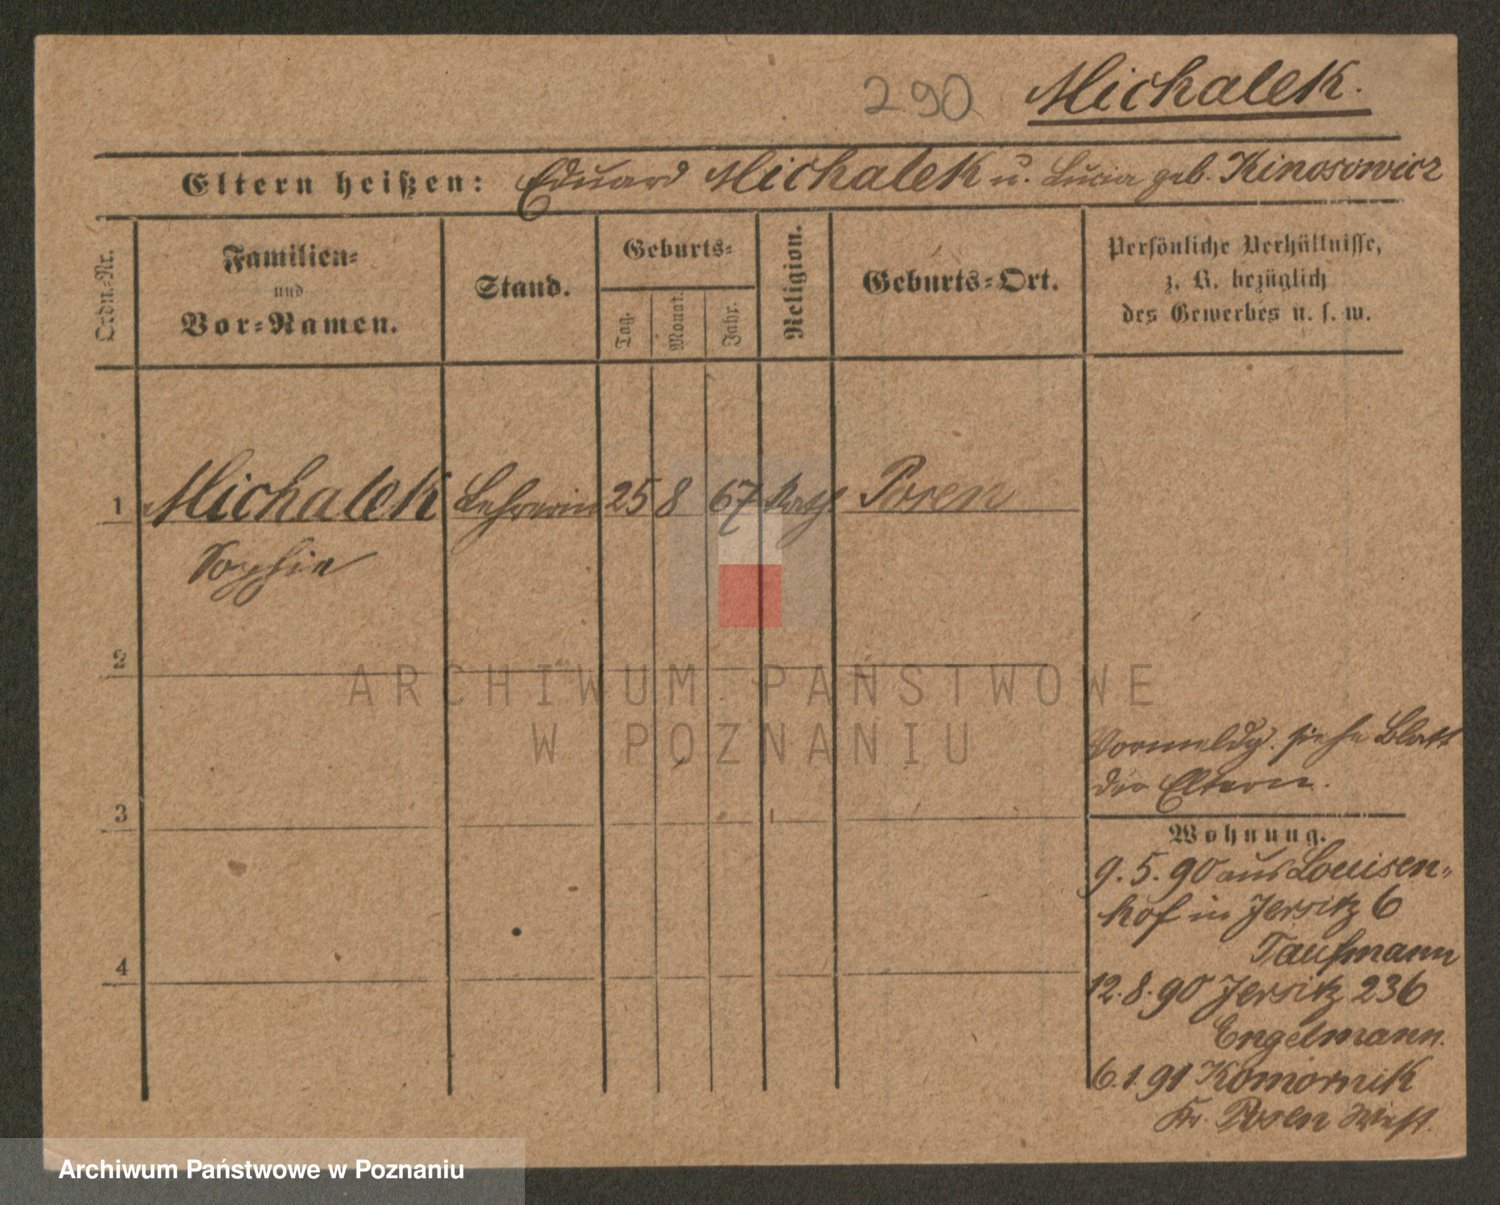 290 Michalek.
Eltern heißen: Eduard Michalek u. Lucia geb. Kinosowicz
Ordn.-Nr.
Familien-
und
Vor-Namen.
Stand.
Geburts-
Tag.
Monat.
Jahr.
Religion.
Geburts-Ort.
Persönliche Verhältnisse,
z. B. bezüglich
des Gewerbes u. s. w.
1 Michalek Lehrerin 25 8 67 Kath. Posen
Sophie
2
3
4
Vormeldg. siehe Blatt
der Eltern.
Wohnung.
9. 5. 90 aus Louisen-
hof in Jersitz 6
Taufmann
12. 8. 90 Jersitz 236
Engelmann.
6. 1. 91 Komornik
Kr. Posen West.
ARCHIWUM PAŃSTWOWE
W POZNANIU
Archiwum Państwowe w Poznaniu